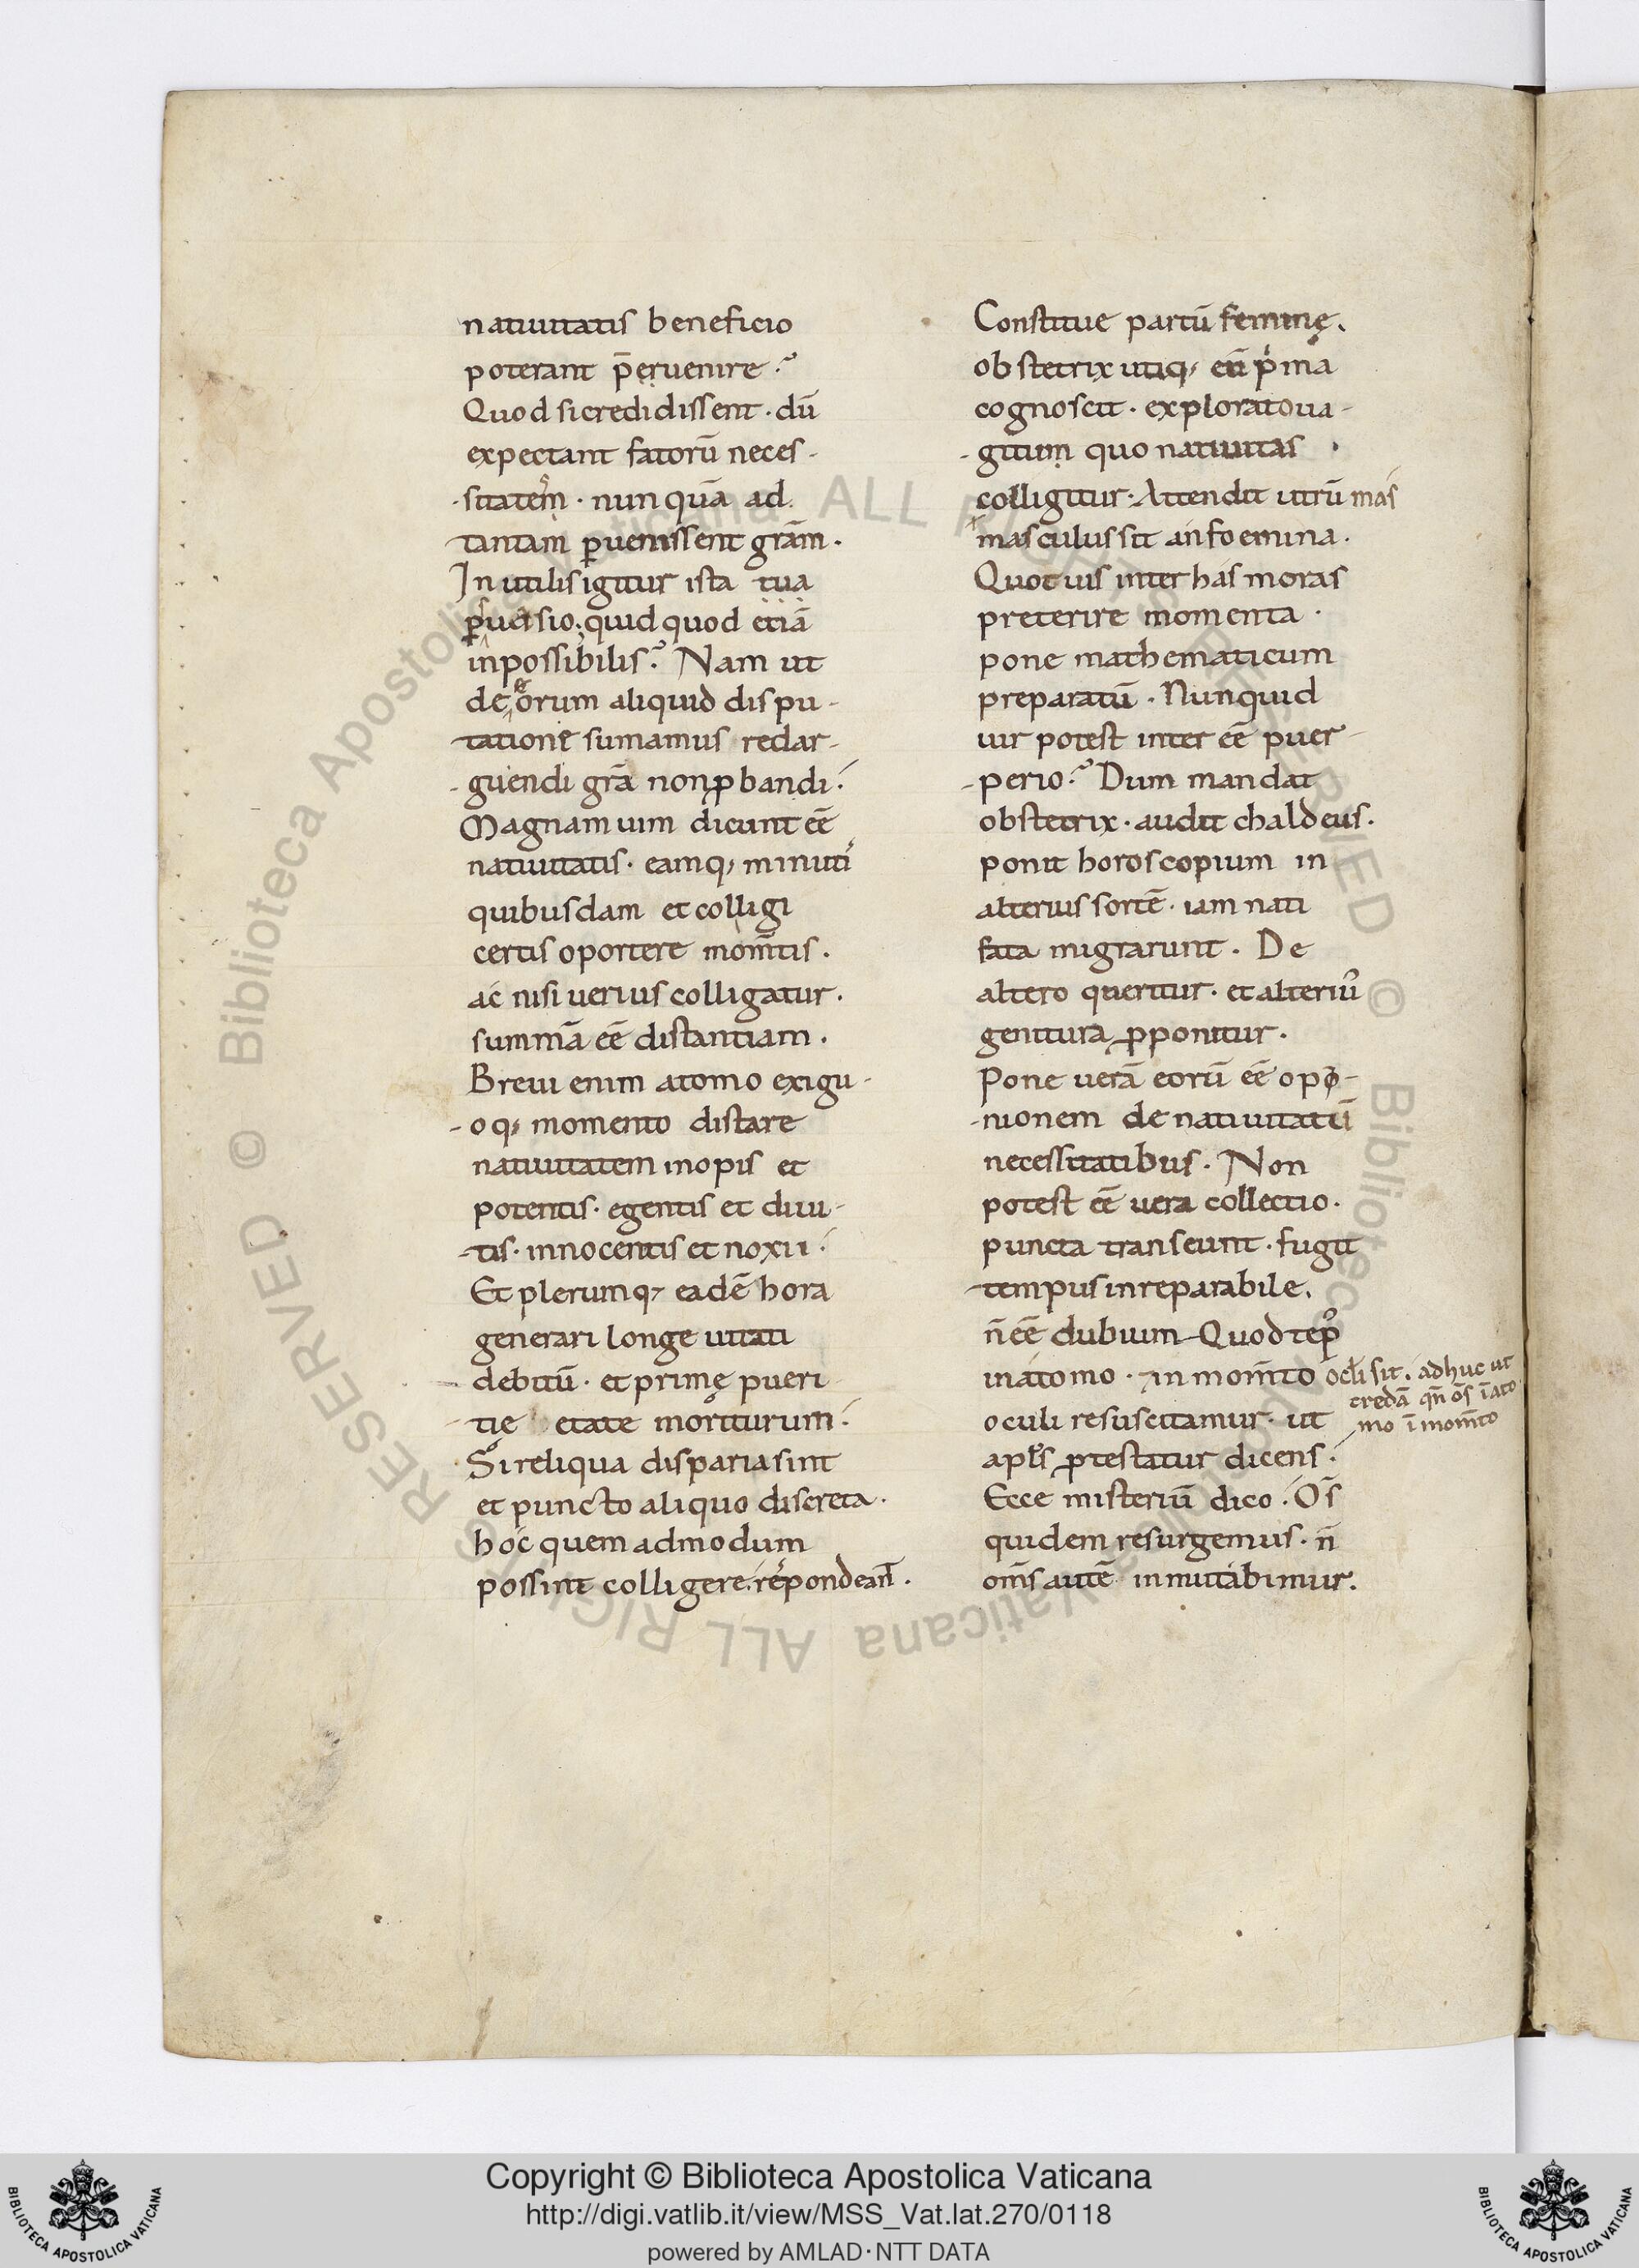 natiuitatis beneficio
poterant p̄eruenire.
Quod si credidissent · dū
expectant fatorū neces-
-sitatem · nunquā ad
tantam ꝑuenissent grām.
Inutilis igitur ista tua
ꝑsuasio. quid quod etiā
inpossibilis? Nam ut
de eorum aliquid dispu-
tatione sumamus redar-
-guendi grā non ꝓbandi.
Magnam uim dicunt eē
natiuitatis. eamq; minuti
quibusdam et colligi
certis oportere mom̄tis.
ac nisi uerius colligatur.
summā eē distantiam.
Breui enim atomo exigu-
-oq; momento distare
natiuitatem inopis et
potentis. egentis et diui-
-tis. innocentis et noxii.
Et plerumq; eadē hora
generari longe uitati
debitū. et primę pueri
tię etate moriturum.
Si reliqua disparia sint
et puncto aliquo discreta.
hoc quemadmodum
possint colligere. respondean̄t.
Constitue partū feminę.
obstetrix utiq; eū pⁱma
cognoscit. explorat ua-
-gitum quo natiuitas
colligitur. Attendit utrū mas
masculus sit an foemina.
Quot uis inter has moras
preterire momenta.
pone mathematicum
preparatū. Nunquid
uir potest inter eē puer-
-perio? Dum mandat
obstetrix. audit chaldeus.
ponit horoscopium in
alterius sortē. iam nati
fata migrarunt. De
altero queritur. et alteriꝰ
genitura ꝓponitur.
Pone uerā eorū eē opi-
-nionem de natiuitatū
necessitatibus. Non
potest eē uera collectio.
puncta transeunt. fugit
tempus inreparabile.
n̄ eē dubium Quod tēpꝰ
in atomo. in mom̄to oc̄li sit. adhuc ut
credā qn̄ ōs ī ato
mo ī mom̄to
oculi resuscitamur. ut
apl̄s ꝓtestatur dicens.
Ecce misteriū dico. Ōs
quidem resurgemus. n̄
om̄s autē inmutabimur.
Copyright © Biblioteca Apostolica Vaticana
http://digi.vatlib.it/view/MSS_Vat.lat.270/0118
powered by AMLAD·NTT DATA
BIBLIOTECA APOSTOLICA VATICANA
BIBLIOTECA APOSTOLICA VATICANA
© Biblioteca Apostolica Vaticana ALL RIGHTS RESERVED © Biblioteca Apostolica Vaticana ALL RIGHTS RESERVED